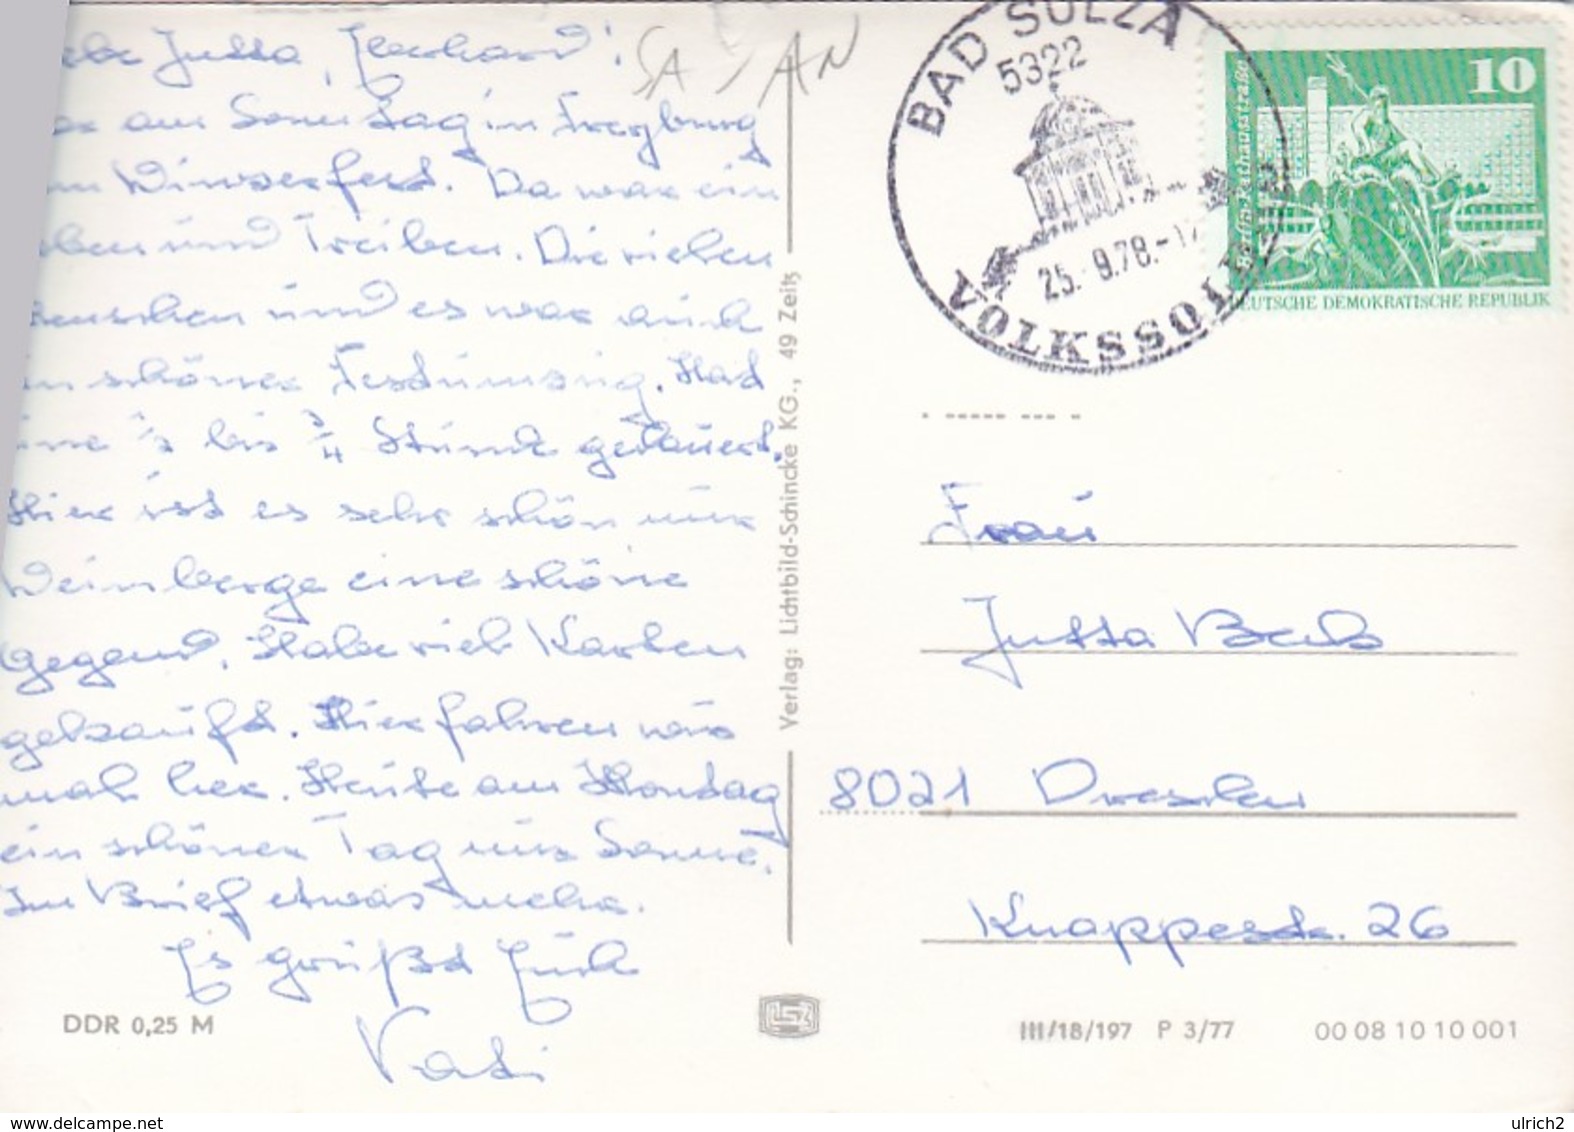 Jutta, Eberhard!
am Sonntag in Freyburg
Winzerfest. Da war ein
und Treiben. Die vielen
und es war auch
schöner Festumzug. Hat
1/2 bis 3/4 Stunde gedauert.
Hier ist es sehr schön nur
Weinberge eine schöne
Gegend. Habe viel Karten
gekauft. Hier fahren wir
mal her. Heute am Montag
ein schöner Tag nur Sonne.
Im Brief etwas mehr.
Es grüßt Euch
Vati
DDR 0,25 M
Verlag: Lichtbild-Schincke KG., 49 Zeitz
BAD SULZA
5322
25.-9.78.-17
VOLKSSOLBAD
10
Berlin, Rathausstraße
DEUTSCHE DEMOKRATISCHE REPUBLIK
Frau
Jutta
8021 Dresden
26
III/18/197 P 3/77 00 08 10 10 001
ulrich2